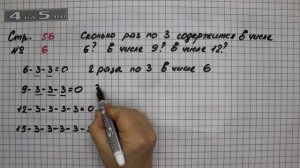 4 à 5
Стр. 56 Сколько раз по 3 содержится в числе
№ 6 6? в числе 9? в числе 12?
6-3-3=0 2 раза по 3 в числе 6
9-3-3-3=0 3
12-3-3-3-3=0
15-3-3-3-3-